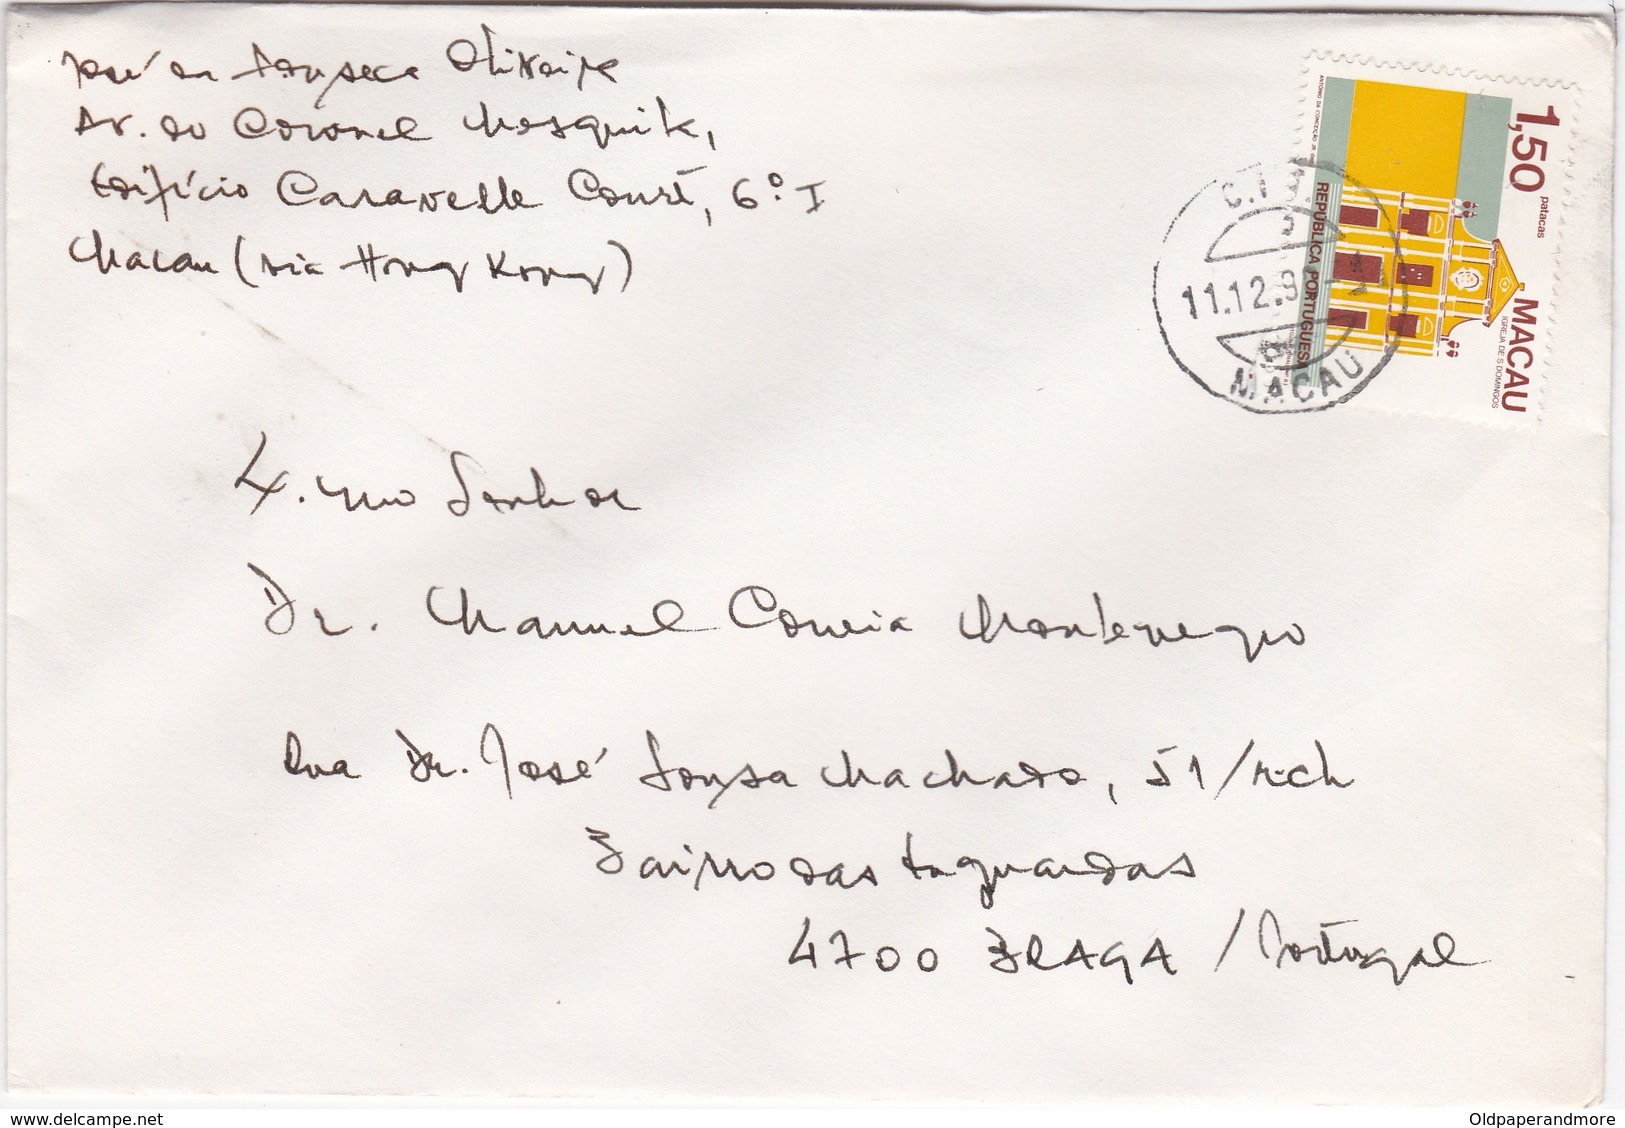 José da Fonseca Oliveira
Av. do Coronel Mesquita,
Edifício Caravelle Court, 6º I
Macau (via Hong Kong)
1,50 patacas
MACAU
IGREJA DE S. DOMINGOS
REPÚBLICA PORTUGUESA
ANTÓNIO DA CONCEIÇÃO JR
C.T.
11.12.8
MACAU
Ex.mo Senhor
Dr. Manuel Correia Montenegro
Rua Dr. José Sousa Machado, 51/r-ch
Bairro das Enguardas
4700 BRAGA / Portugal
www.delcampe.net
Oldpaperandmore